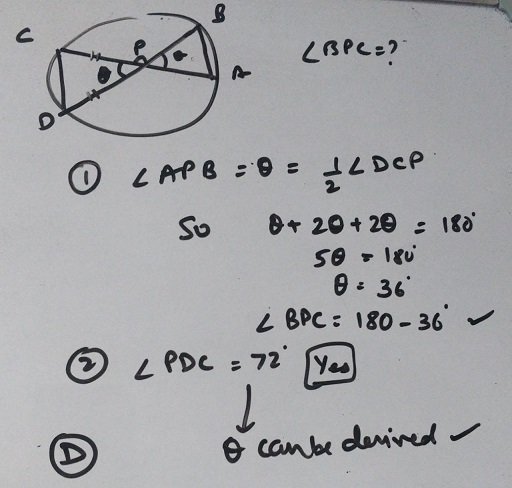 C
B
P
θ
θ
A
D
∠BPC = ?
① ∠APB = θ = 1/2 ∠DCP
So θ + 2θ + 2θ = 180°
5θ = 180°
θ = 36°
∠BPC = 180 - 36° ✓
② ∠PDC = 72° Yes
↓
θ can be derived ✓
Ⓓ